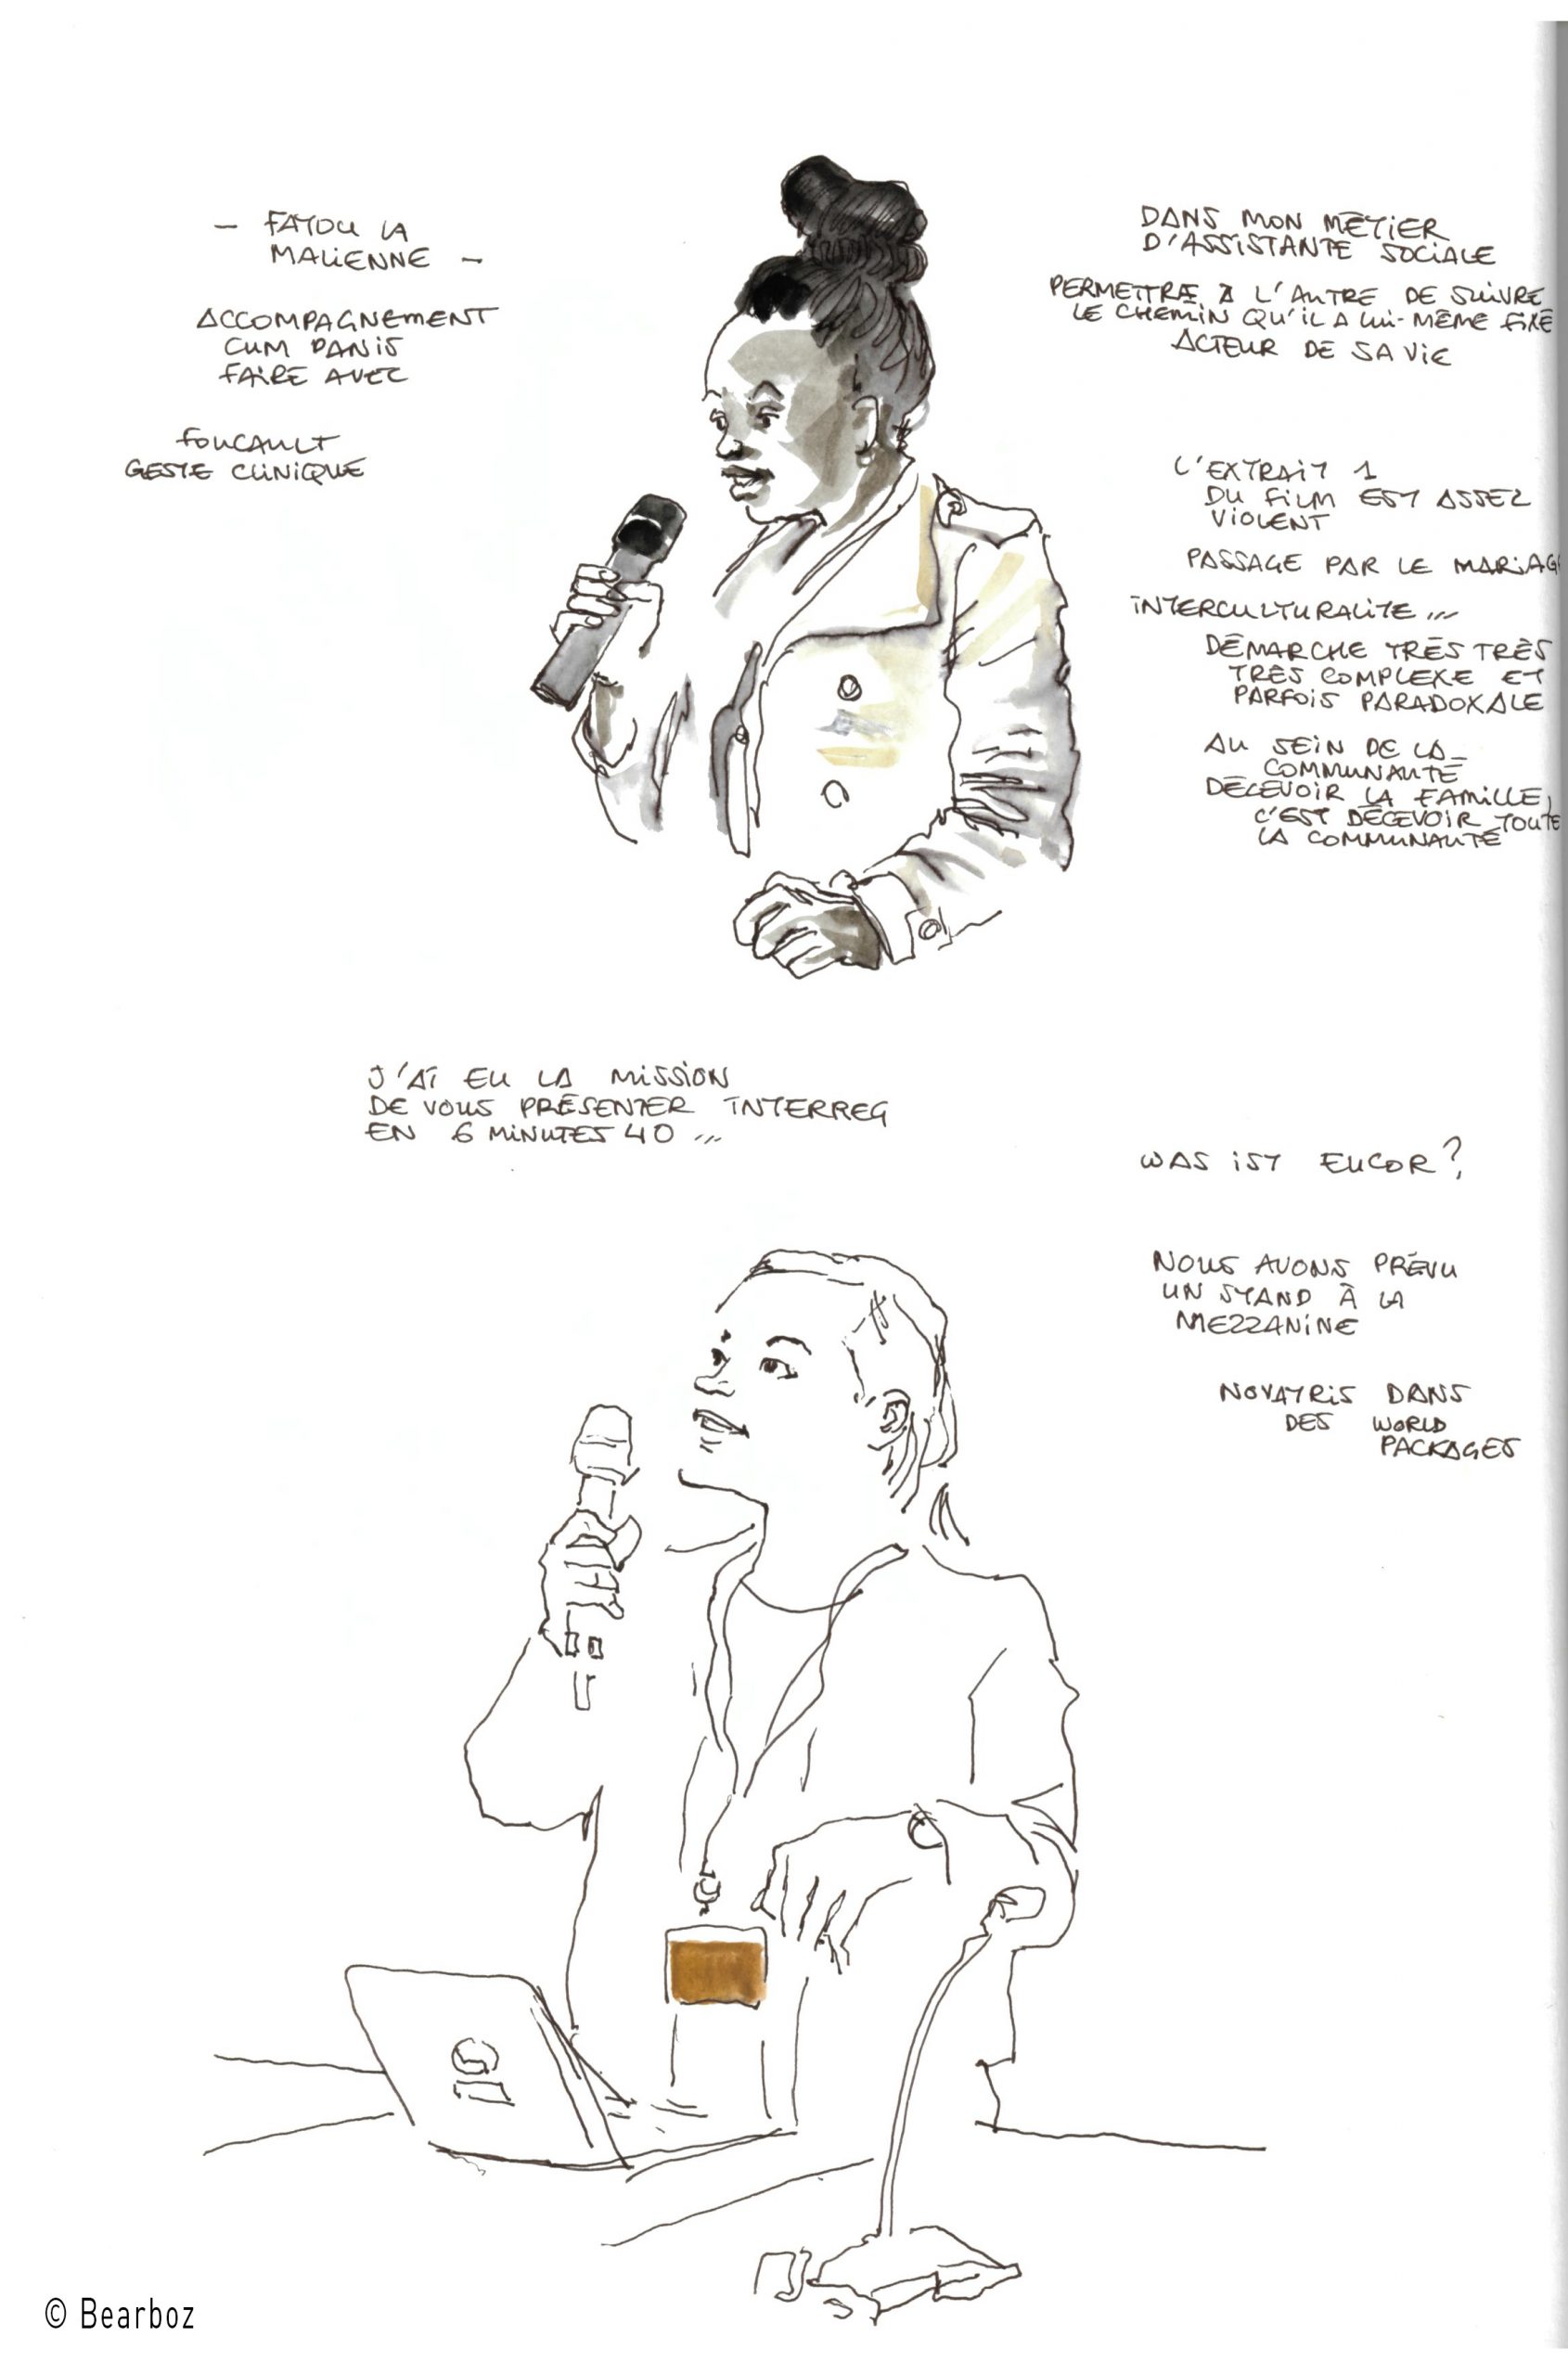 — FATOU LA
MALIENNE —
ACCOMPAGNEMENT
CUM PANIS
FAIRE AVEC
FOUCAULT
GESTE CLINIQUE
DANS MON MÉTIER
D'ASSISTANTE SOCIALE
PERMETTRE À L'AUTRE DE SUIVRE
LE CHEMIN QU'IL A LUI-MÊME FIXÉ
ACTEUR DE SA VIE
L'EXTRAIT 1
DU FILM EST ASSEZ
VIOLENT
PASSAGE PAR LE MARIAG
INTERCULTURALITE ...
DÉMARCHE TRÈS TRÈS
TRÈS COMPLEXE ET
PARFOIS PARADOXALE
AU SEIN DE LA
COMMUNAUTÉ
DÉCEVOIR LA FAMILLE,
C'EST DÉCEVOIR TOUTE
LA COMMUNAUTÉ
J'AI EU LA MISSION
DE VOUS PRÉSENTER INTERREG
EN 6 MINUTES 40 ...
WAS IST EUCOR ?
NOUS AVONS PRÉVU
UN STAND À LA
MEZZANINE
NOVATRIS DANS
DES WORLD
PACKAGES
© Bearboz